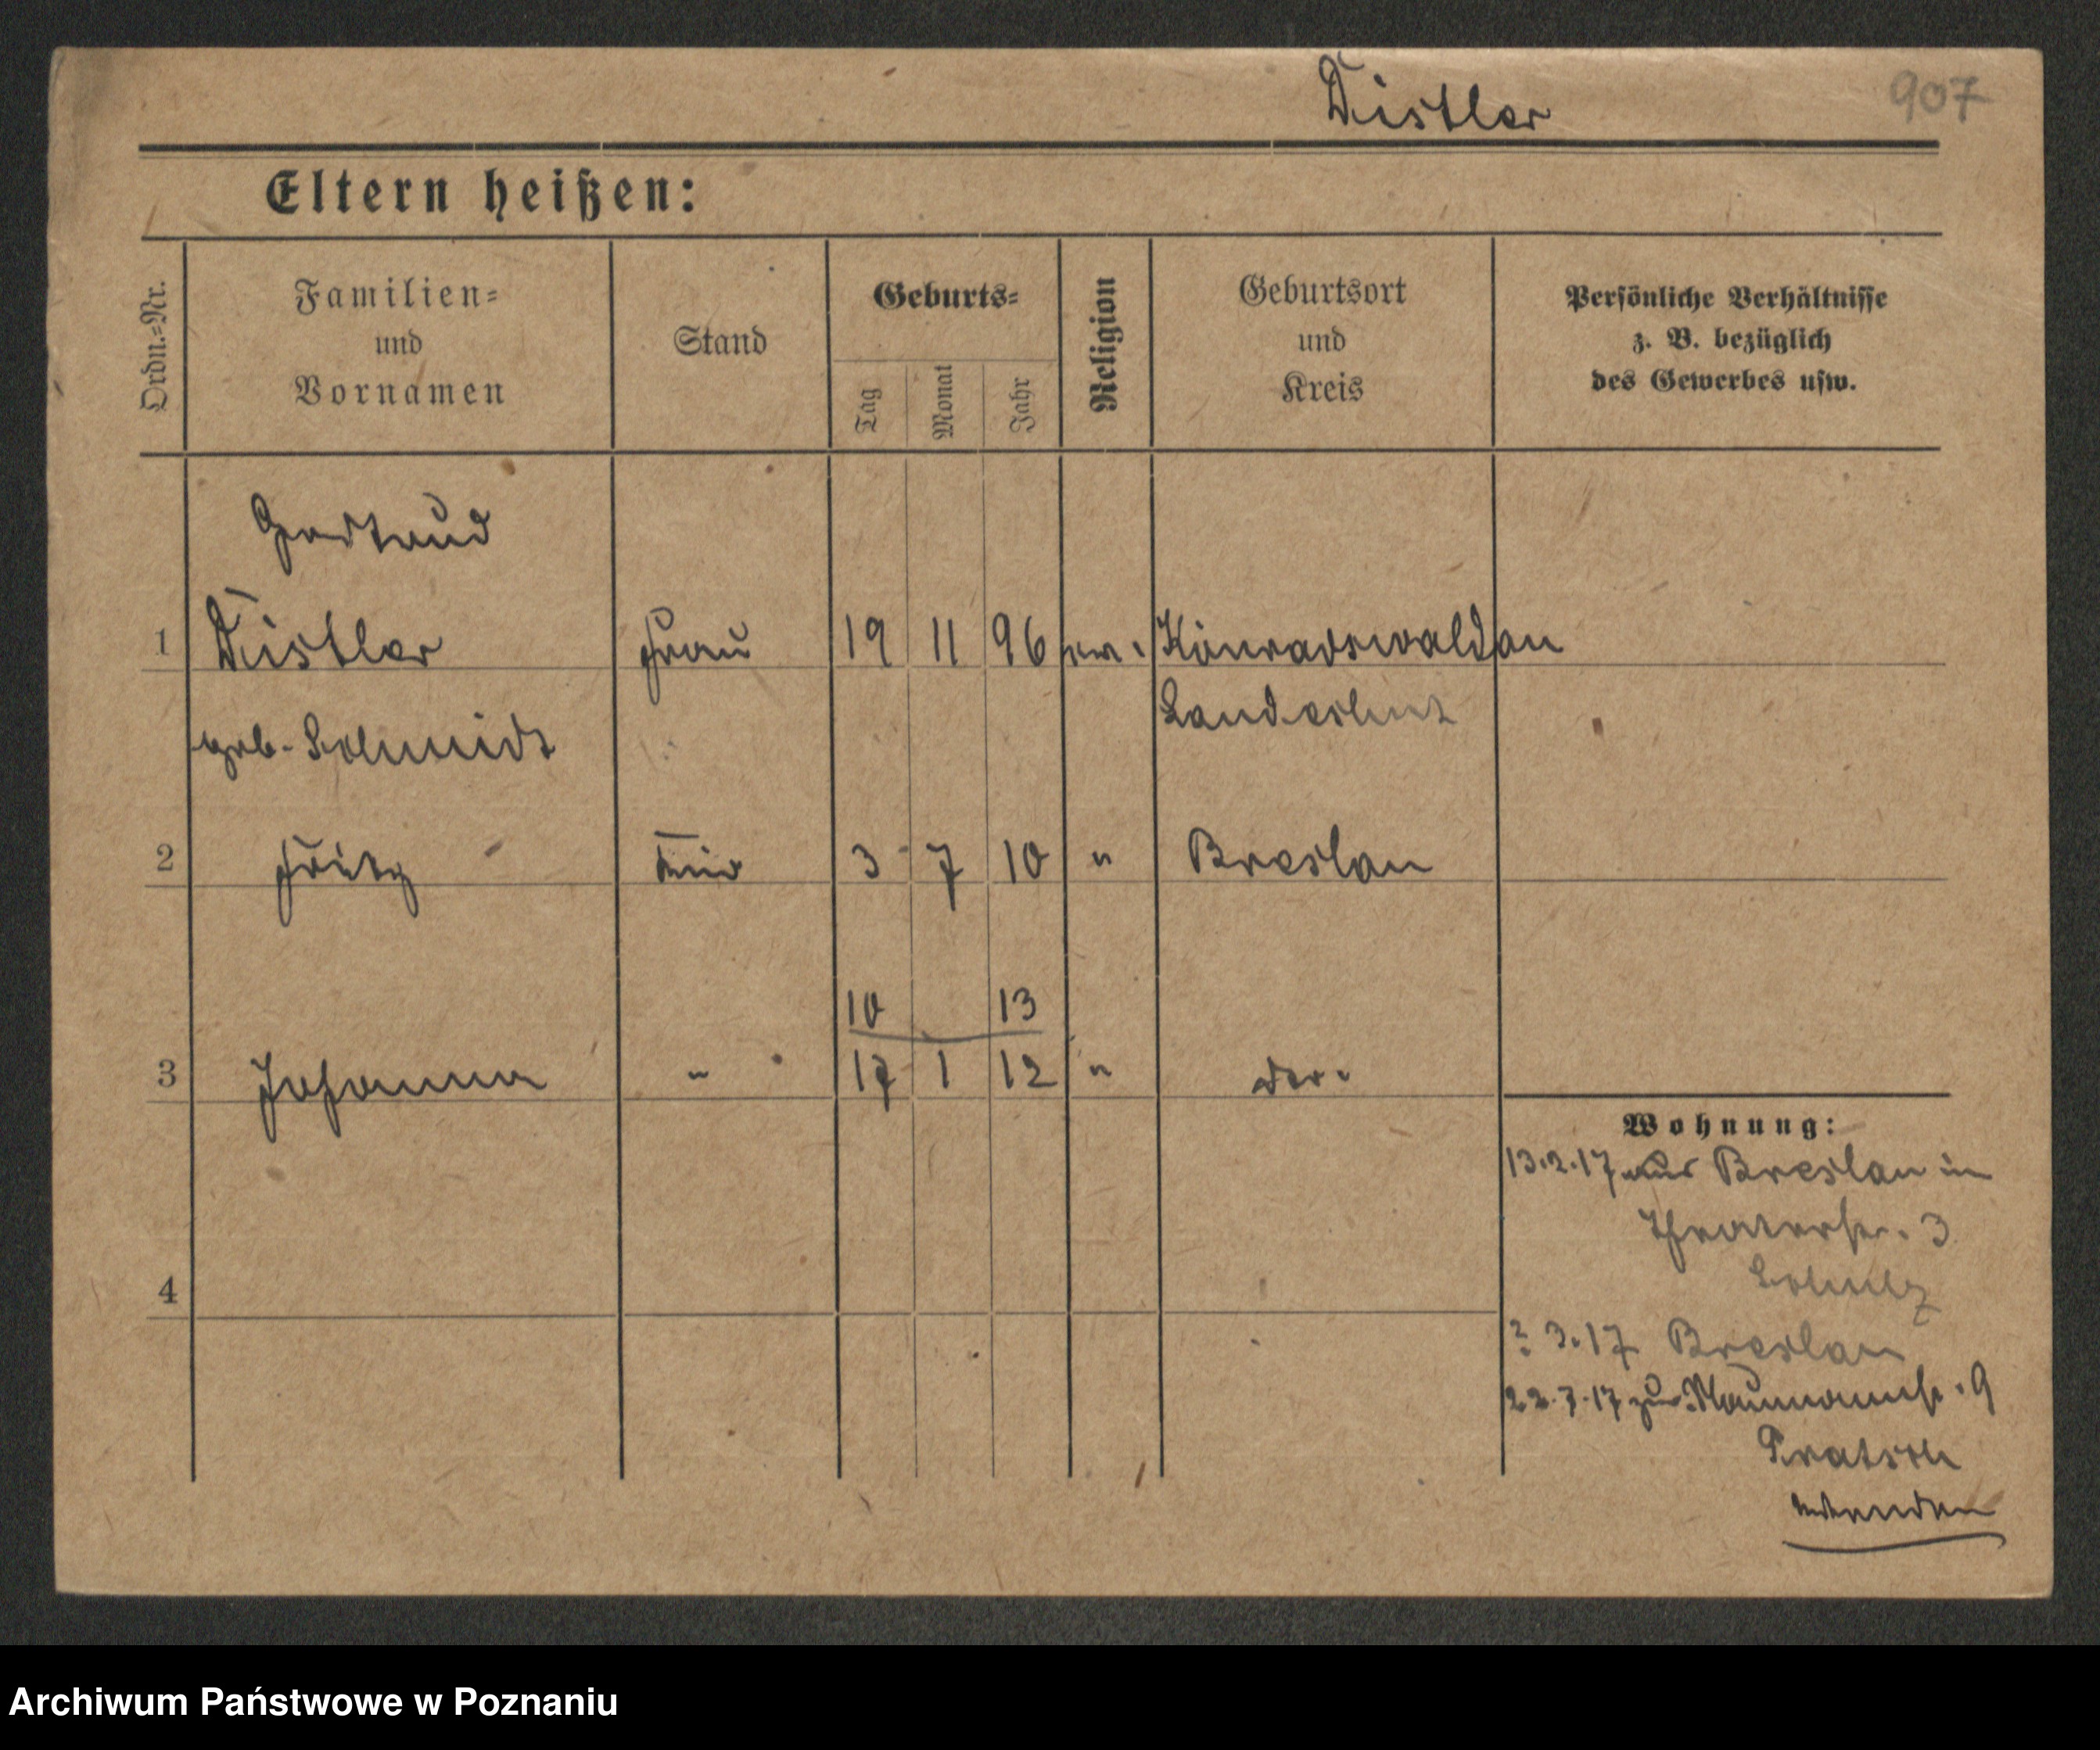 Distler 907
Eltern heißen:
Ordn.=Nr.
Familien=
und
Vornamen
Stand
Geburts=
Tag
Monat
Jahr
Religion
Geburtsort
und
Kreis
Persönliche Verhältnisse
z. B. bezüglich
des Gewerbes usw.
Gertrud
1 Distler Frau 19 11 96 ev. Konradswaldau
geb. Schmidt Landeshut
2 Fritz Kind 3 7 10 " Breslau
10 13
3 Johanna " 17 1 12 " das.
4
Wohnung:
13.2.17 aus Breslau in
Theaterstr. 3
Schulz
? 3.17 Breslau
22.7.17 zur Naumannstr. 9
Pratsch
wenden
Archiwum Państwowe w Poznaniu